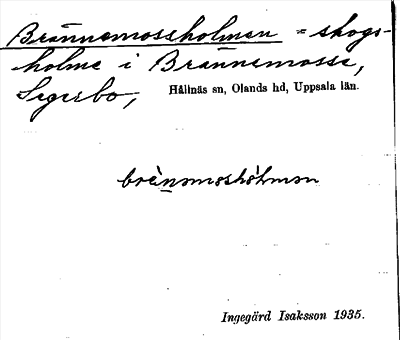 Brännemossholmen = skogs-
holme i Brännemosse,
Segerbo, Hållnäs sn, Olands hd, Uppsala län.
brènomoshòlmen
Ingegärd Isaksson 1935.